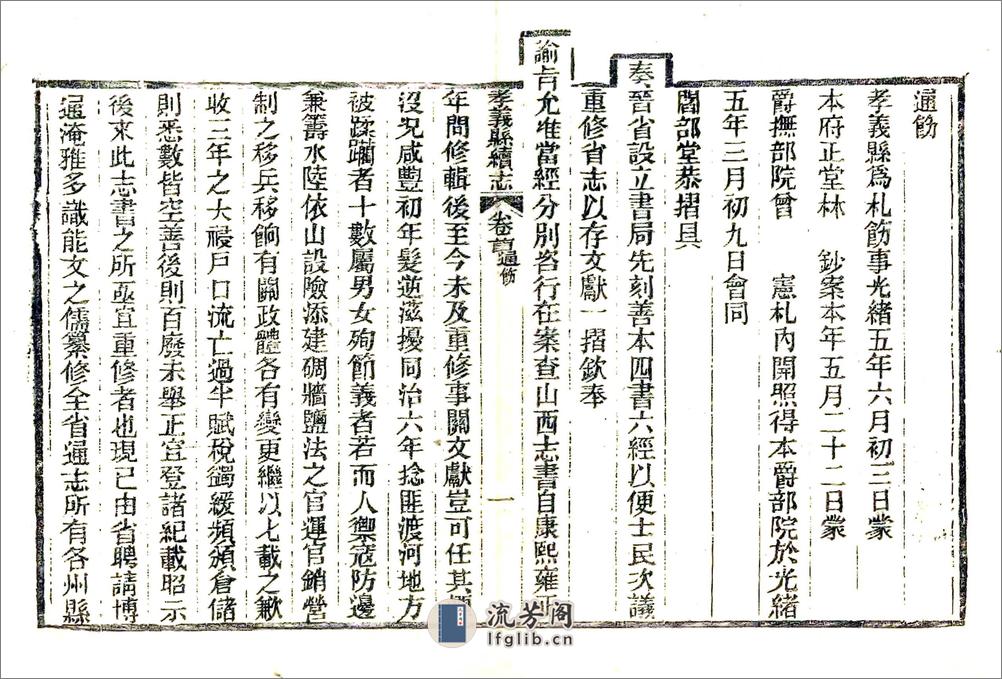 通飭
孝義縣爲札飭事光緒五年六月初三日蒙
本府正堂林 鈔案本年五月二十二日蒙
爵撫部院曾 憲札內開照得本爵部院於光緒
五年三月初九日會同
閻部堂恭摺具
奏晉省設立書局先刻善本四書六經以便士民次議
重修省志以存文獻一摺欽奉
諭旨允准當經分別咨行在案查山西志書自康熙雍正
孝義縣續志 卷首 通飭 一
年間修輯後至今未及重修事關文獻豈可任其
沒况咸豐初年髮逆滋擾同治六年捻匪渡河地方
被蹂躪者十數屬男女殉節義者若而人禦寇防邊
兼籌水陸依山設險添建碉牆鹽法之官運官銷營
制之移兵移餉有關政體各有變更繼以七載之歉
收三年之大祲戶口流亡過半賦稅蠲緩頻頒倉儲
則悉數皆空善後則百廢未舉正宜登諸紀載昭示
後來此志書之所亟宜重修者也現已由省聘請博
通淹雅多識能文之儒纂修全省通志所有各州縣
流芳阁
lfglib.cn